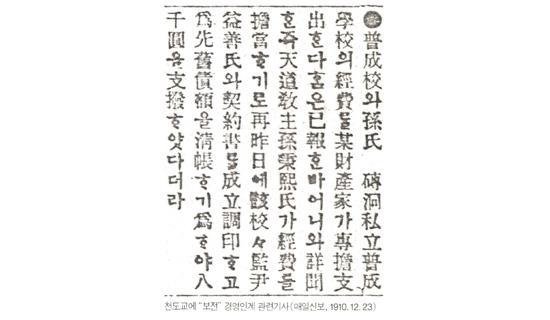 ●普成校와孫氏 磚洞私立普成
學校의經費를某財産家가專擔支
出ᄒᆞᆫ다ᄒᆞᆷ은已報ᄒᆞᆫ바어니와詳聞
ᄒᆞᆫ즉天道敎主孫秉熙氏가經費를
擔當ᄒᆞ기로再昨日에該校々監尹
益善氏와契約書를成立調印ᄒᆞ고
爲先舊債額을淸帳ᄒᆞ기爲ᄒᆞ야八
千圓을支撥ᄒᆞ얏다더라
천도교에 "보전" 경영인계 관련기사(매일신보, 1910. 12. 23)